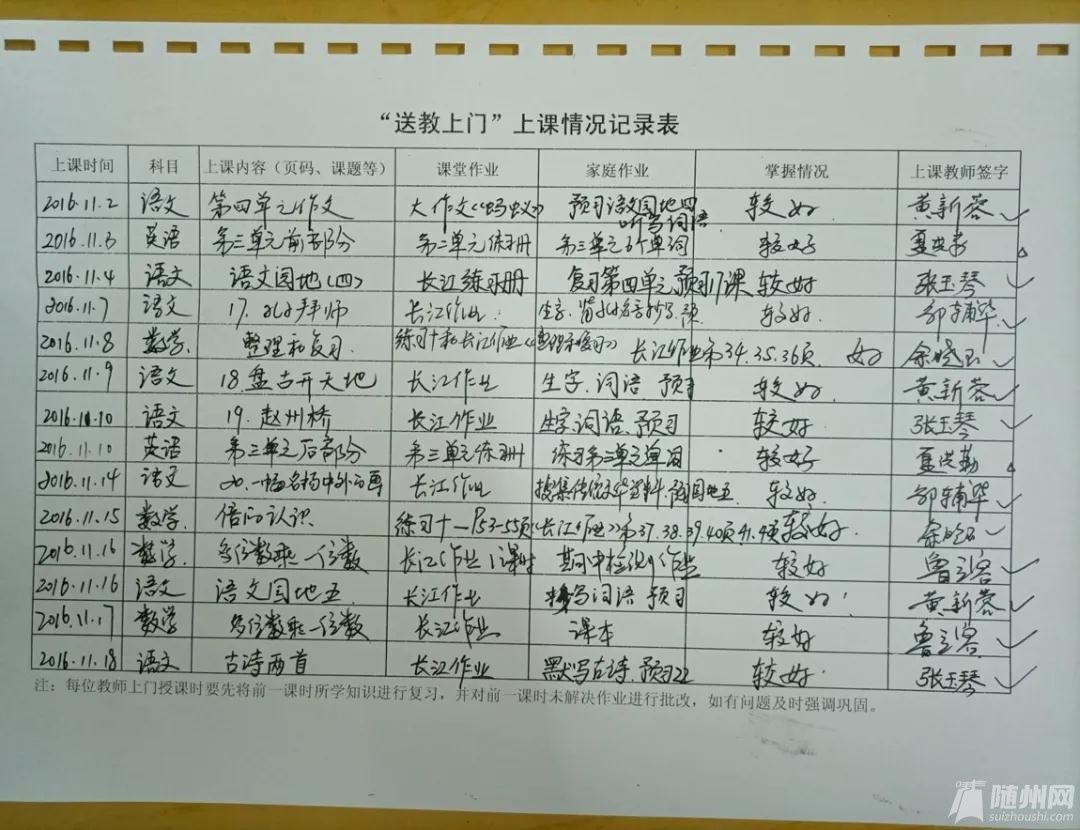 “送教上门”上课情况记录表
上课时间 科目 上课内容（页码、课题等） 课堂作业 家庭作业 掌握情况 上课教师签字
2016.11.2 语文 第四单元作文 大作文《蚂蚁》 预习语文园地四 听写词语 较好 黄新蓉
2016.11.3 英语 第三单元前部分 第三单元练习册 第三单元6个单词 较好
2016.11.4 语文 语文园地(四) 长江练习册 复习第四单元预习17课 较好 张玉琴
2016.11.7 语文 17.孔子拜师 长江作业 生字. 较好. 邹辅华
2016.11.8 数学 整理和复习 练习十和长江作业《整理和复习》 长江作业第34.35.36页 好
2016.11.9 语文 18.盘古开天地 长江作业 生字.词语.预习 较好 黄新蓉
2016.11.10 语文 19.赵州桥 长江作业 生字词语.预习 较好. 张玉琴
2016.11.10 英语 第三单元后部分 第三单元练习册 练习第三单元单词 较好
2016.11.14 语文 20.一幅名扬中外的画 长江作业 搜集传统文华资料.预园地五 较好. 邹辅华
2016.11.15 数学 倍的认识 练习十一P53-55页 《长江作业》第37.38.39.40页41.4页 较好.
2016.11.16 数学 多位数乘一位数 长江作业1课时 期中检测作业 较好
2016.11.16 语文 语文园地五 长江作业 词语 预习 较好 黄新蓉
2016.11.17 数学 多位数乘一位数 长江作业 课本 较好
2016.11.18 语文 古诗两首 长江作业 默写古诗.预习22 较好 张玉琴
注：每位教师上门授课时要先将前一课时所学知识进行复习，并对前一课时未解决作业进行批改，如有问题及时强调巩固。
随州网
suizhoushi.com